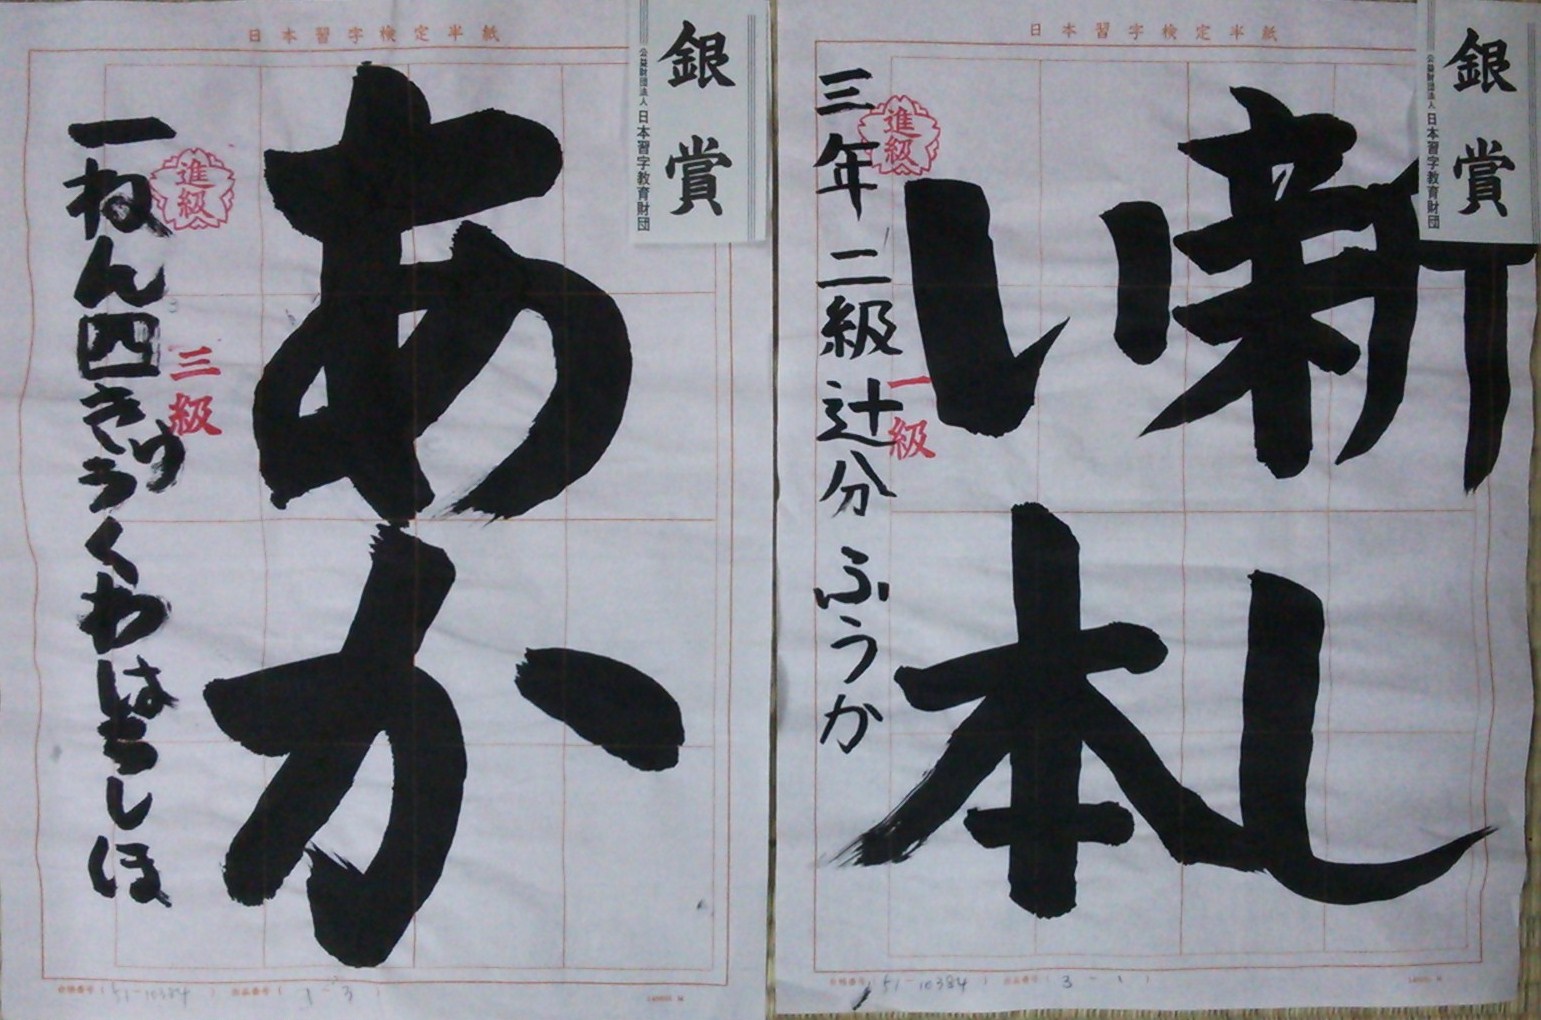 日本習字検定半紙
銀賞
公益財団法人 日本習字教育財団
あか
進級
三級
一ねん 四きゅう くわはらしほ
51-10384
1-3
日本習字検定半紙
銀賞
公益財団法人 日本習字教育財団
新しい
札
進級
一級
三年 二級 辻分 ふうか
51-10384
3-1